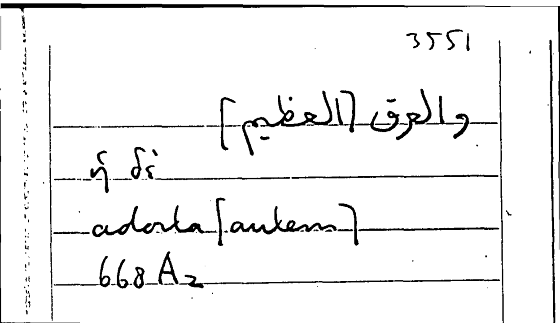 3551
والعرق [العظيم]
ἡ δὲ
adorta [autem]
668 A2